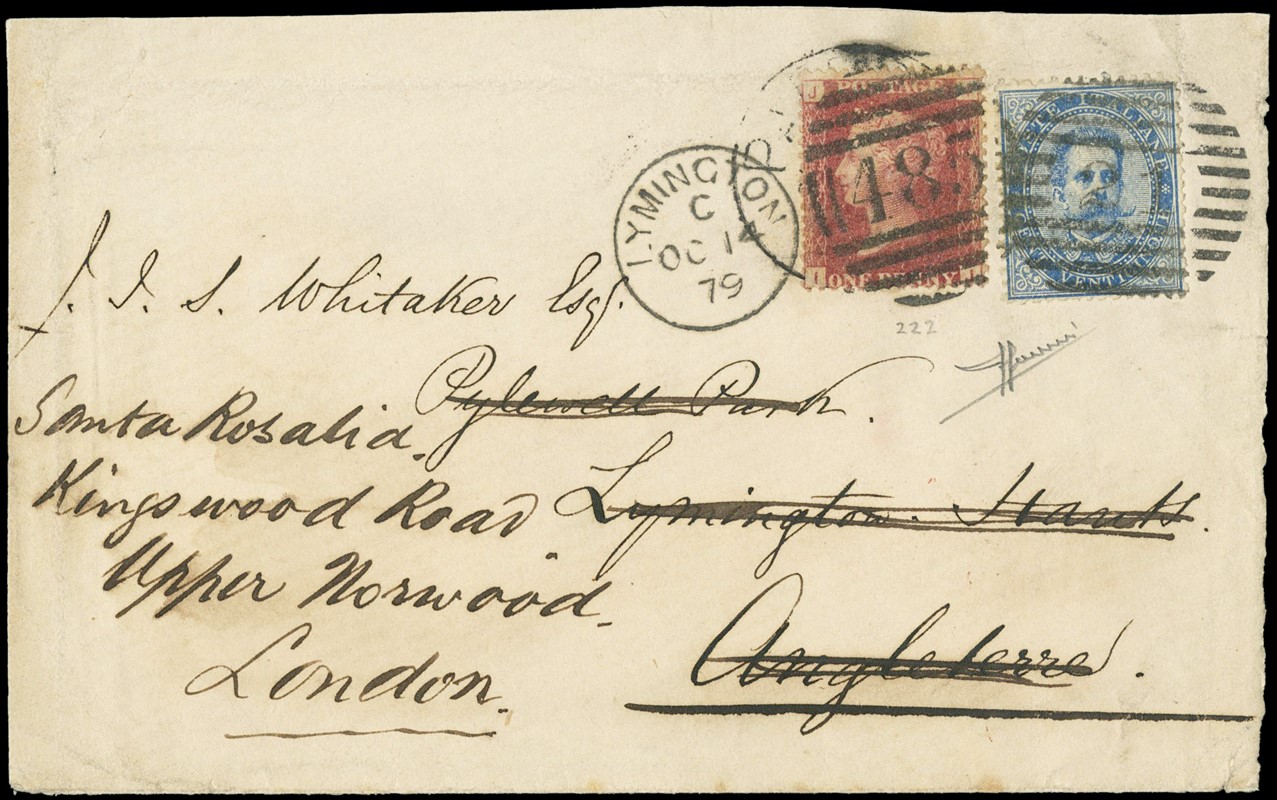 POSTAGE
J
485
ONE PENNY
POSTE ITALIANE
VENTICINQUE
LYMINGTON
C
OC 14
79
222
J. I. S. Whitaker Esq.
Pylewell Park.
Lymington. Hants.
Angleterre.
Santa Rosalia.
Kingswood Road
Upper Norwood.
London.